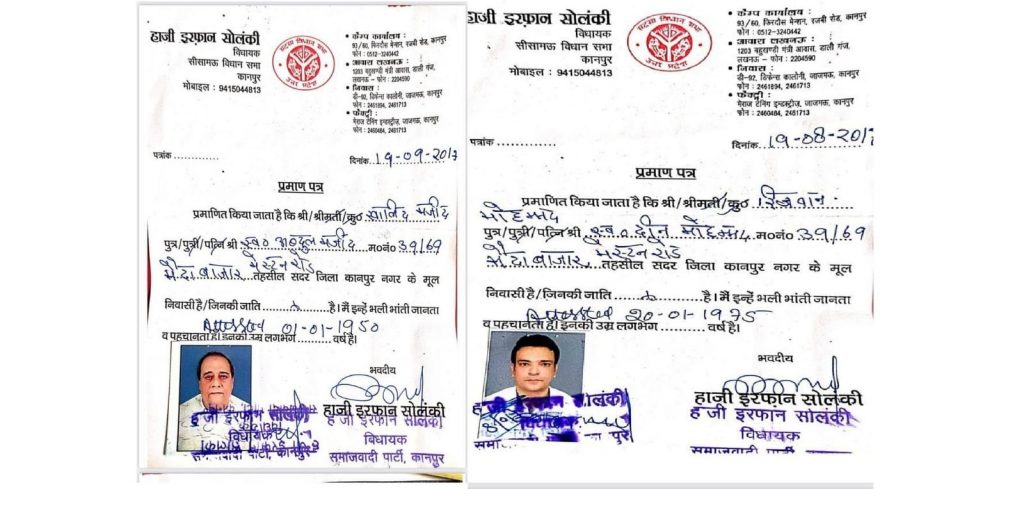 हाजी इरफान सोलंकी
विधायक
सीसामऊ विधान सभा
कानपुर
मोबाइल : 9415044813
उत्तर प्रदेश
• कैम्प कार्यालय :
93/60, फिरदौस मेन्शन, रजबी रोड, कानपुर
फोन : 0512-3240442
• आवास लखनऊ :
1203 बहुखण्डी मंत्री आवास, डाली गंज,
लखनऊ - फोन : 2204590
• निवास :
डी-92, डिफेन्स कालोनी, जाजमऊ, कानपुर
फोन : 2461894, 2461713
• फैक्ट्री :
मेराज टेनिंग इन्डस्ट्रीज, जाजमऊ, कानपुर
फोन : 2460484, 2461713
पत्रांक ............
दिनांक. 19-09-2017
प्रमाण पत्र
प्रमाणित किया जाता है कि श्री/श्रीमती/कु० खालिद मजीद
पुत्र/पुत्री/पत्नि श्री स्व० अब्दुल मजीद म०नं० 39/69
मैदा बाजार मेस्टन रोड तहसील सदर जिला कानपुर नगर के मूल
निवासी है/जिनकी जाति ............ है। मैं इन्हें भली भांती जानता
Attested 01-01-1950
व पहचानता हूँ। इनकी उम्र लगभग ............ वर्ष है।
भवदीय
हाजी इरफान सोलंकी
हाजी इरफान सोलंकी
विधायक
समाजवादी पार्टी, कानपुर
हाजी इरफान सोलंकी
विधायक
समाजवादी पार्टी, कानपुर
हाजी इरफान सोलंकी
विधायक
सीसामऊ विधान सभा
कानपुर
मोबाइल : 9415044813
उत्तर प्रदेश
• कैम्प कार्यालय :
93/60, फिरदौस मेन्शन, रजबी रोड, कानपुर
फोन : 0512-3240442
• आवास लखनऊ :
1203 बहुखण्डी मंत्री आवास, डाली गंज,
लखनऊ - फोन : 2204590
• निवास :
डी-92, डिफेन्स कालोनी, जाजमऊ, कानपुर
फोन : 2461894, 2461713
• फैक्ट्री :
मेराज टेनिंग इन्डस्ट्रीज, जाजमऊ, कानपुर
फोन : 2460484, 2461713
पत्रांक ............
दिनांक. 19-08-2017
प्रमाण पत्र
प्रमाणित किया जाता है कि श्री/श्रीमती/कु० रिजवान
मोहम्मद
पुत्र/पुत्री/पत्नि श्री स्व० दीन मोहम्मद म०नं० 39/69
मैदा बाजार मेस्टन रोड तहसील सदर जिला कानपुर नगर के मूल
निवासी है/जिनकी जाति ............ है। मैं इन्हें भली भांती जानता
Attested 20-01-1975
व पहचानता हूँ। इनकी उम्र लगभग ............ वर्ष है।
भवदीय
हाजी इरफान सोलंकी
हाजी इरफान सोलंकी
विधायक
हाजी इरफान सोलंकी
विधायक